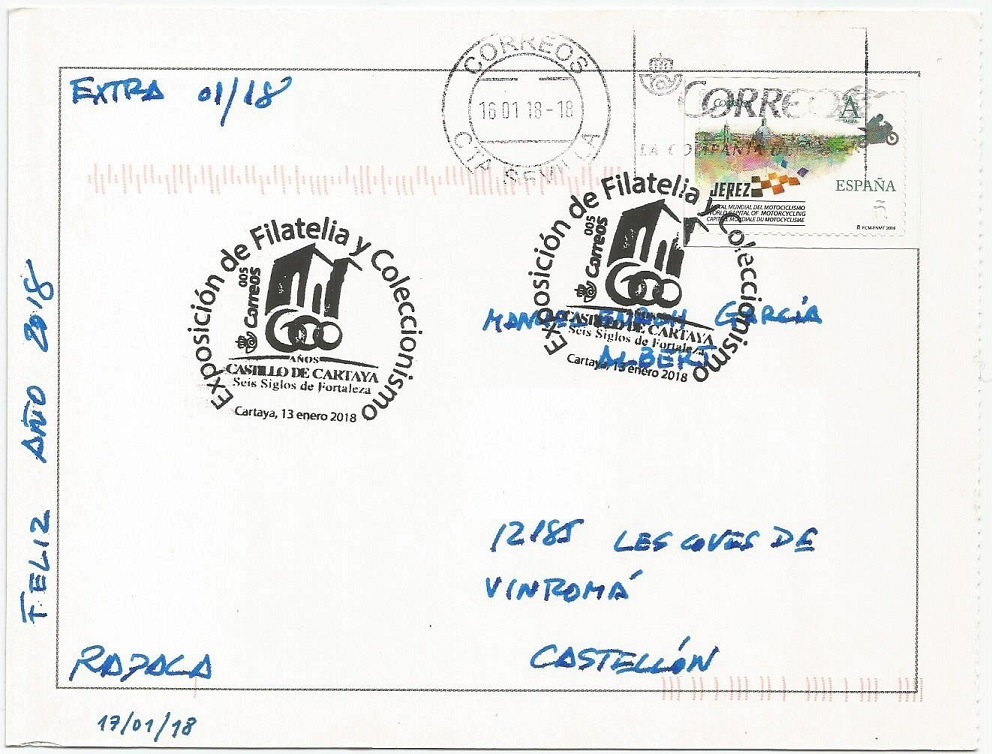 EXTRA 01/18
CORREOS
16 01 18-18
CTA SEVILLA
CORREOS
LA COMPAÑIA DE
A
JEREZ
ESPAÑA
CAPITAL MUNDIAL DEL MOTOCICLISMO
WORLD CAPITAL OF MOTORCYCLING
CAPITALE MONDIALE DU MOTOCYCLISME
Exposición de Filatelia y Coleccionismo
500
Correos
600
AÑOS
CASTILLO DE CARTAYA
Seis Siglos de Fortaleza
Cartaya, 13 enero 2018
Exposición de Filatelia y Coleccionismo
500
Correos
600
CASTILLO DE CARTAYA
Seis Siglos de Fortaleza
Cartaya, 13 enero 2018
GARCÍA
ALBERT
12185 LES COVES DE
VINROMÁ
CASTELLÓN
FELIZ AÑO 2018
17/01/18